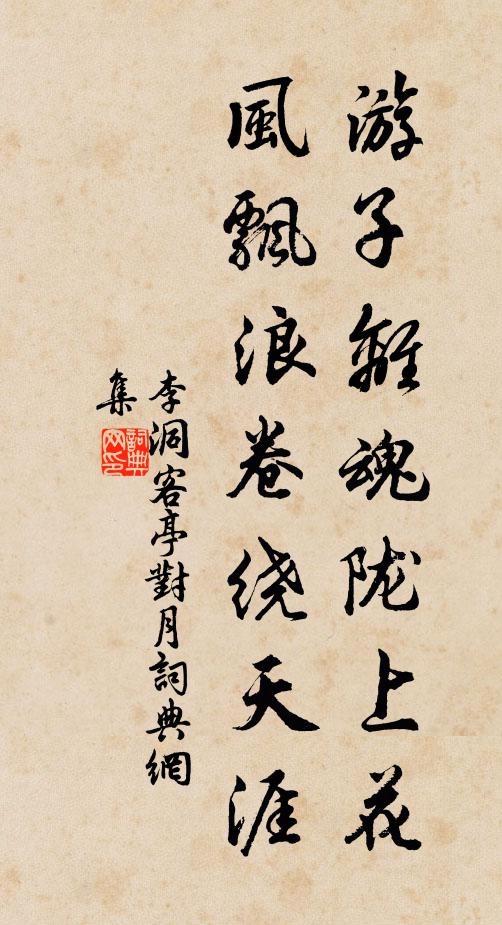 游子離魂陇上花
風飄浪卷绕天涯
李洞客亭對月詞典網
集
詞典網印